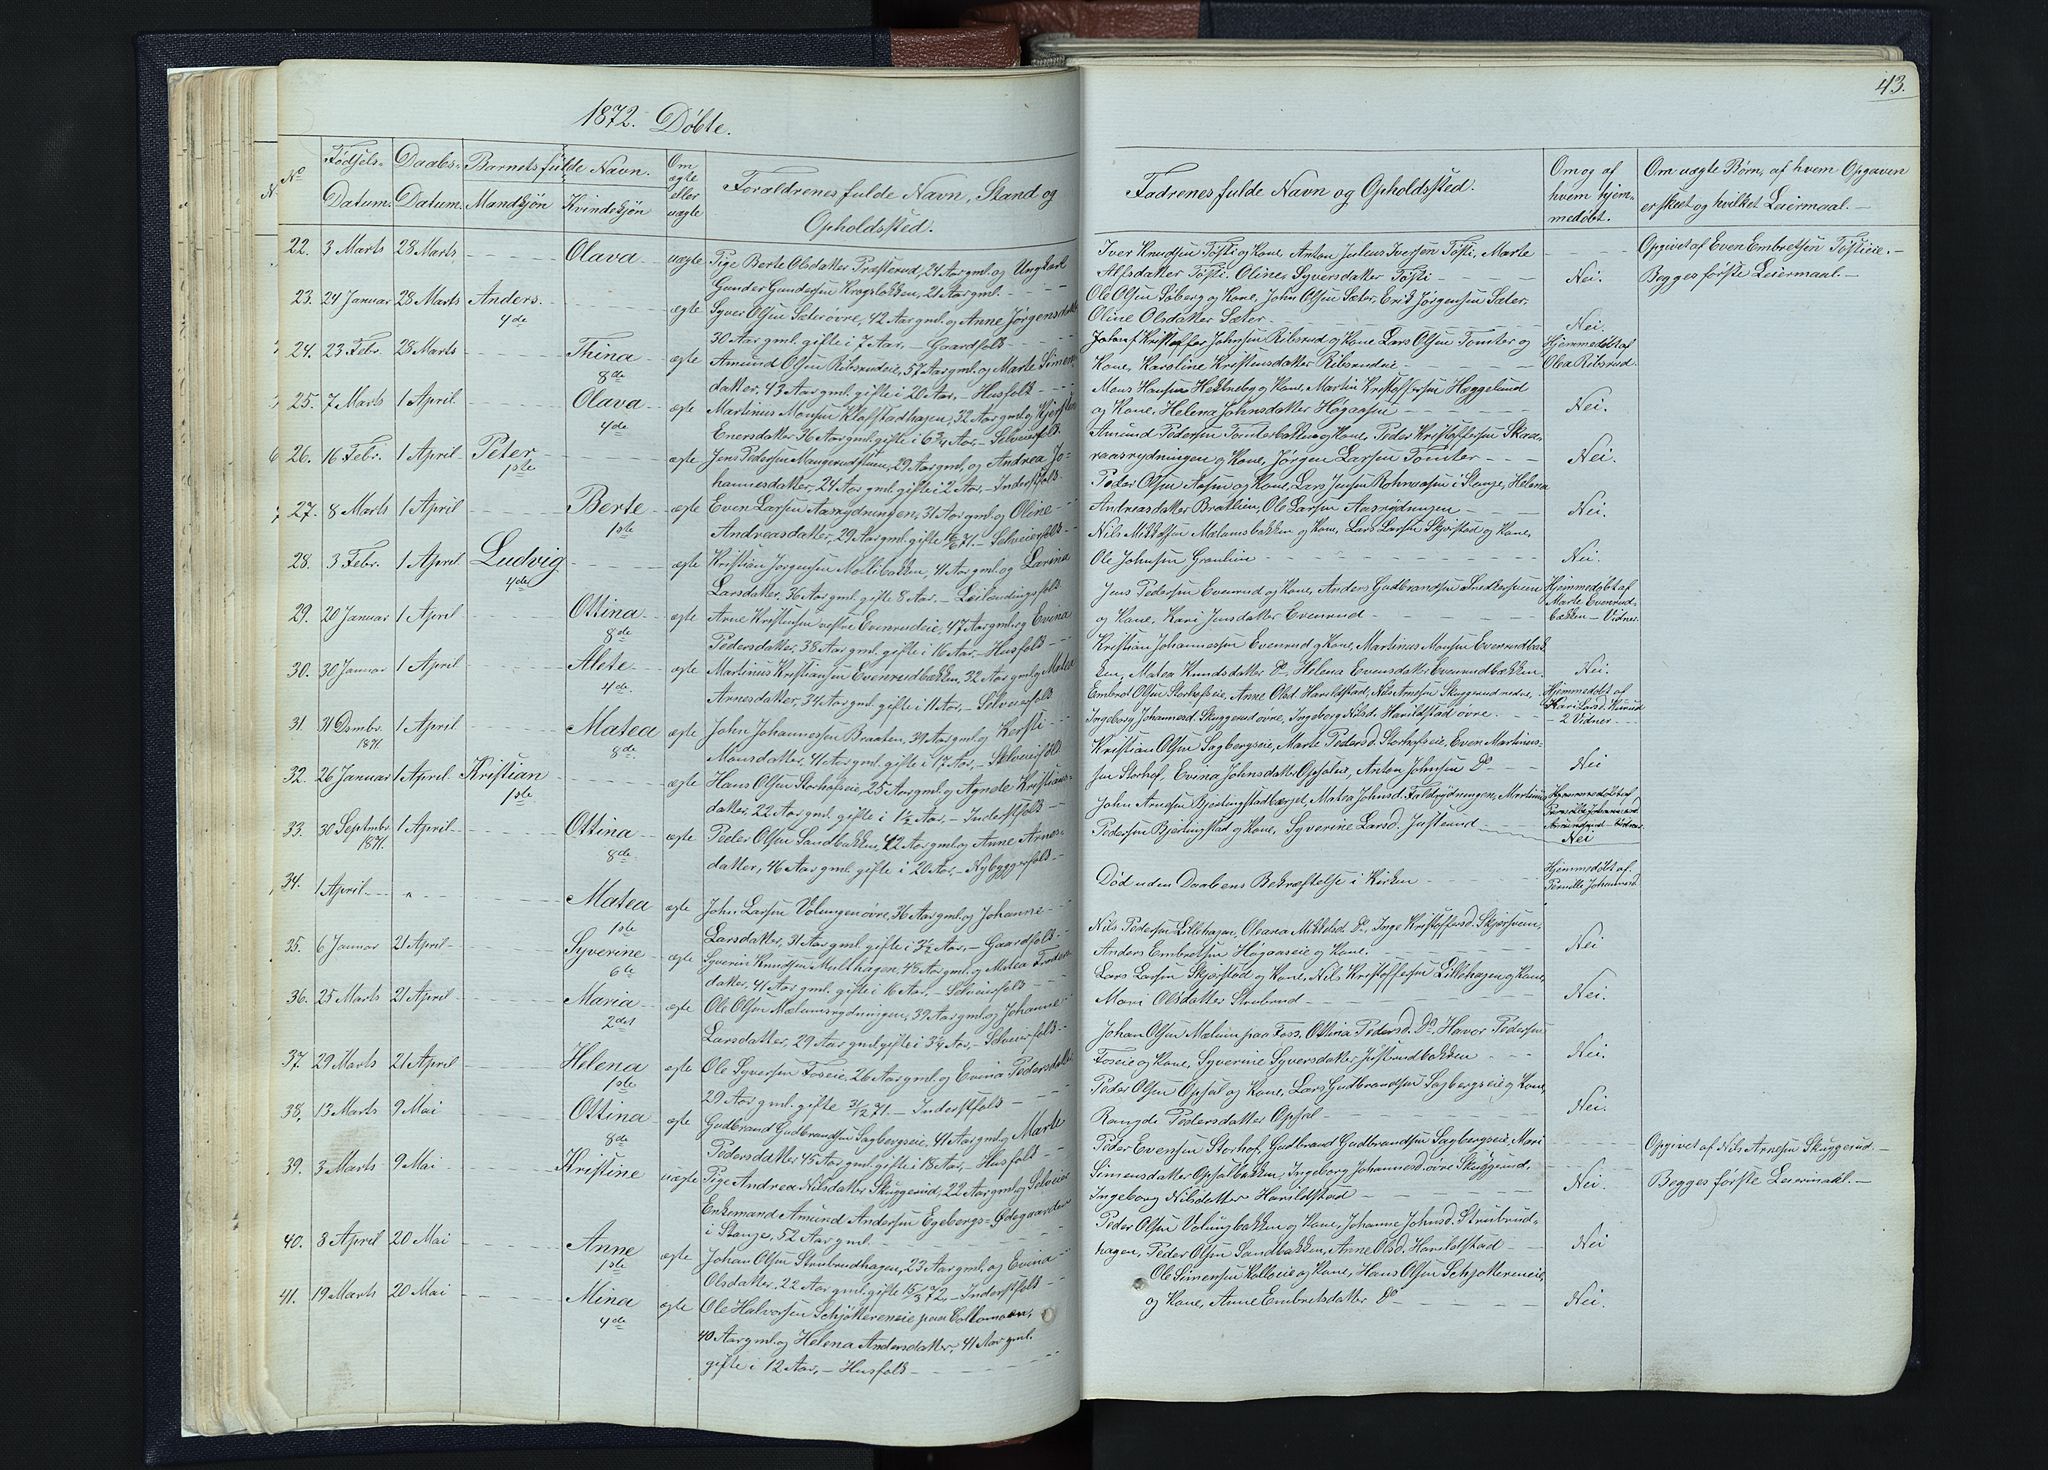 1872. Døbte.
43.
No
Fødsels-
Datum.
Daabs-
Datum.
Barnets fulde Navn.
Mandkjøn
Kvindekjøn
Om
ægte
eller
uægte
Forældrenes fulde Navn, Stand og
Opholdssted.
Fadrenes fulde Navn og Opholdssted.
Om og af
hvem hjem-
medøbt.
Om uægte Børn, af hvem Opgaven
er skeet og hvilket Leiermaal.
22. 3 Marts 28 Marts Olava uægte
Pige Berte Olsdatter Præsterud, 24 Aar gml. og Ungkarl
Gunder Gundersen Krogsbakken, 21 Aar gml.
Iver Knudsen Tøsti og Kone, Anton Julius Iversen Tøsti, Marte
Alfsdatter Tøsti, Oline Syversdatter Tøsti
Nei.
Opgivet af Even Embretsen Tøstieie.
Begges første Leiermaal.
23. 24 Januar 28 Marts Anders. 4de ægte
Syver Olsen Sæter øvre, 42 Aar gml. og Anne Jørgensdatter
30 Aar gml. gifte i 7 Aar. Gaardfolk
Ole Olsen Soberg og Kone, John Olsen Sæter, Erik Jørgensen Sæter,
Oline Olsdatter Sæter.
Nei.
24. 23 Febr. 28 Marts Thina 8de ægte
Amund Olsen Ribsrudeie, 57 Aar gml. og Marte Simens-
datter, 43 Aar gml. gifte i 20 Aar. Husfolk
Johan Kristoffer Johnsen Ribsrud og Kone, Lars Olsen Tomter og
Kone, Karoline Kristensdatter Ribsrudeie
Hjemmedøbt af
Olea Ribsrud.
25. 7 Marts 1 April. Olava 4de ægte
Martinus Monsen Klofstadhagen, 32 Aar gml. og Kjersti
Enersdatter 36 Aar gml. gifte i 6¾ Aar. Selveierfolk
Mons Hansen Hekneby og Kone, Martin Kristoffersen Hyggelund
og Kone, Helena Johnsdatter Høgaasen
Nei.
26. 16 Febr. 1 April Peter 1ste ægte
Jens Pedersen Mangerudstuen, 29 Aar gml. og Andrea Jo-
hannesdatter, 24 Aar gml. gifte i 2 Aar. Inderstfolk
Amund Pedersen Tomterbakken og Kone, Peder Kristoffersen Skaa-
raasrydningen og Kone, Jørgen Larsen Tomter
Nei.
27. 8 Marts 1 April Berte 1ste ægte
Even Larsen Aasrydningen, 31 Aar gml. og Oline
Andreasdatter, 29 Aar gml. gifte 71. Selveierfolk
Peder Olsen Aasen og Kone, Lars Jensen Rohnaasen i Stange, Helena
Andreasdatter Brathien, Ole Larsen Aasrydningen
Nei.
28. 3 Febr. 1 April Ludvig 4de ægte
Kristian Jørgensen Mollibakken, 41 Aar gml. og Larina
Larsdatter, 36 Aar gml. gifte 8 Aar. Leilændingsfolk
Nils Mikkelsen Mælumsbakken og Kone, Lars Larsen Skjerstad og Kone,
Ole Johnsen Granlien
Nei
29. 20 Januar 1 April Ottina 8de ægte
Arne Kristensen vestre Evenrudeie, 47 Aar gml. og Evina
Pedersdatter, 38 Aar gml. gifte i 16 Aar. Husfolk
Jens Pedersen Evenrud og Kone, Anders Gudbrandsen
og Kone, Kari Jensdatter Evenrud
Hjemmedøbt af
Marte Evenrud-
bakken Vidner
30. 30 Januar 1 April Alete 4de ægte
Martinus Kristiansen Evenrudbakken, 32 Aar gml. og Matea
Arnesdatter, 34 Aar gml. gifte i 11 Aar. Selveierfolk
Kristian Johannessen Evenrud og Kone, Martinus Monsen Evenrudbak-
ken, Matea Knudsdatter Do, Helena Evensdatter Evenrudbakken.
Nei
31. 31 Dsmbr. 1871. 1 April Matea 8de ægte
John Johannessen Braaten, 39 Aar gml. og Kersti
Monsdatter, 41 Aar gml. gifte i 17 Aar. Selveierfolk
Embret Olsen Storhofseie, Anne Olsd. Harildstad, Nils Arnesen Skuggerud nedre,
Ingeborg Johannesd. Skuggerud øvre, Ingeborg Nilsd. Harildstad øvre.
Hjemmedøbt af
Kari Larsd.
2 Vidner
32. 26 Januar 1 April Kristian 1ste ægte
Hans Olsen Storhofseie, 25 Aar gml. og Agnete Kristians-
datter, 22 Aar gml. gifte i 1½ Aar. Inderstfolk
Kristian Olsen Sagbergseie, Marte Pedersd. Storhofseie, Even Martinus-
sen Storhof, Evina Johnsdatter Opsalus, Anton Johnsen Do
Nei
33. 30 Septmbr. 1871. 1 April Ottina 8de ægte
Peder Olsen Sandbakken, 42 Aar gml. og Anne Arnes-
datter, 46 Aar gml. gifte i 20 Aar. Nybyggerfolk
John Arnesen Bjerlingstadbærget, Matea Johnsd. Faldrydningen, Martinus
Pedersen Bjerlingstad og Kone, Syverine Larsd. Justerud
Hjemmedøbt af
Pernille Johannesd
Vidner.
Nei
34. 1 April " Matea 1ste ægte
John Larsen Volungen øvre, 36 Aar gml. og Johanne
Larsdatter, 31 Aar gml. gifte i 3½ Aar. Gaardfolk
Død uden Daabens Bekræftelse i Kirken
Hjemmedøbt af
Pernille Johannesd
35. 6 Januar 21 April Syverine 6te ægte
Syverin Knudsen Multhagen, 45 Aar gml. og Matea
datter, 41 Aar gml. gifte i 16 Aar. Selveierfolk
Nils Pedersen Lillehagen, Oleana Mikkelsd. Do, Inge Kristoffersd. Skjersveen,
Anders Embretsen Høgaaseie og Kone.
Nei
36. 25 Marts 21 April Maria 2det ægte
Ole Olsen Mælumsrydningen, 39 Aar gml. og Johanne
Larsdatter, 29 Aar gml. gifte i 3¼ Aar. Selveierfolk
Lars Larsen Skjerstad og Kone, Nils Kristoffersen Lillehagen og Kone,
Mari Olsdatter Strubrud
Nei.
37. 29 Marts 21 April Helena 1ste ægte
Ole Syversen Foseie, 26 Aar gml. og Evina Pedersdatter
29 Aar gml. gifte 31/12 71. Inderstfolk
Johan Olsen Mælum paa Foss, Ottina Pedersd. Do, Haver Pedersen
Foseie og Kone, Syverine Syversdatter Justrudbakken
Nei.
38. 13 Marts 9 Mai Ottina 8de ægte
Gudbrand Gudbrandsen Sagbergseie, 41 Aar gml. og Marte
Pedersdatter 45 Aar gml. gifte i 18 Aar. Husfolk
Peder Olsen Opsal og Kone, Lars Gudbrandsen Sagbergseie og Kone,
Rangdi Pedersdatter Opsal
Nei.
39. 3 Marts 9 Mai Kristine uægte
Pige Andrea Nilsdatter Skuggerud, 22 Aar gml. og Selveier
Enkemand Amund Andersen Egebergs-Ødegaarden
i Stange, 52 Aar gml.
Peder Evensen Storhof, Gudbrand Gudbrandsen Sagbergseie, Mari
Simensdatter Opsalbakken, Ingeborg Johannesd. øvre Skuggerud,
Ingeborg Nilsdatter Harildstad
Nei
Opgivet af Nils Arnesen Skuggerud.
Begges første Leiermaal.
40. 3 April 20 Mai Anne 1ste ægte
Johan Olsen Strubrudhagen, 23 Aar gml. og Evina
Olsdatter, 22 Aar gml. gifte 15/3 72. Inderstfolk
Peder Olsen Volungbakken og Kone, Johanne Johnsd. Strubrud-
hagen, Peder Olsen Sandbakken, Anne Olsd. Harildstad
Nei
41. 19 Marts 20 Mai Mina 4de ægte
Ole Halvorsen Schjøttereneie paa
40 Aar gml. og Helena Andersdatter, 41 Aar gml.
gifte i 12 Aar, Husfolk
Ole Simensen Kolloeie og Kone, Hans Olsen Schjøttereneie
og Kone, Anne Embretsdatter Do
Nei.